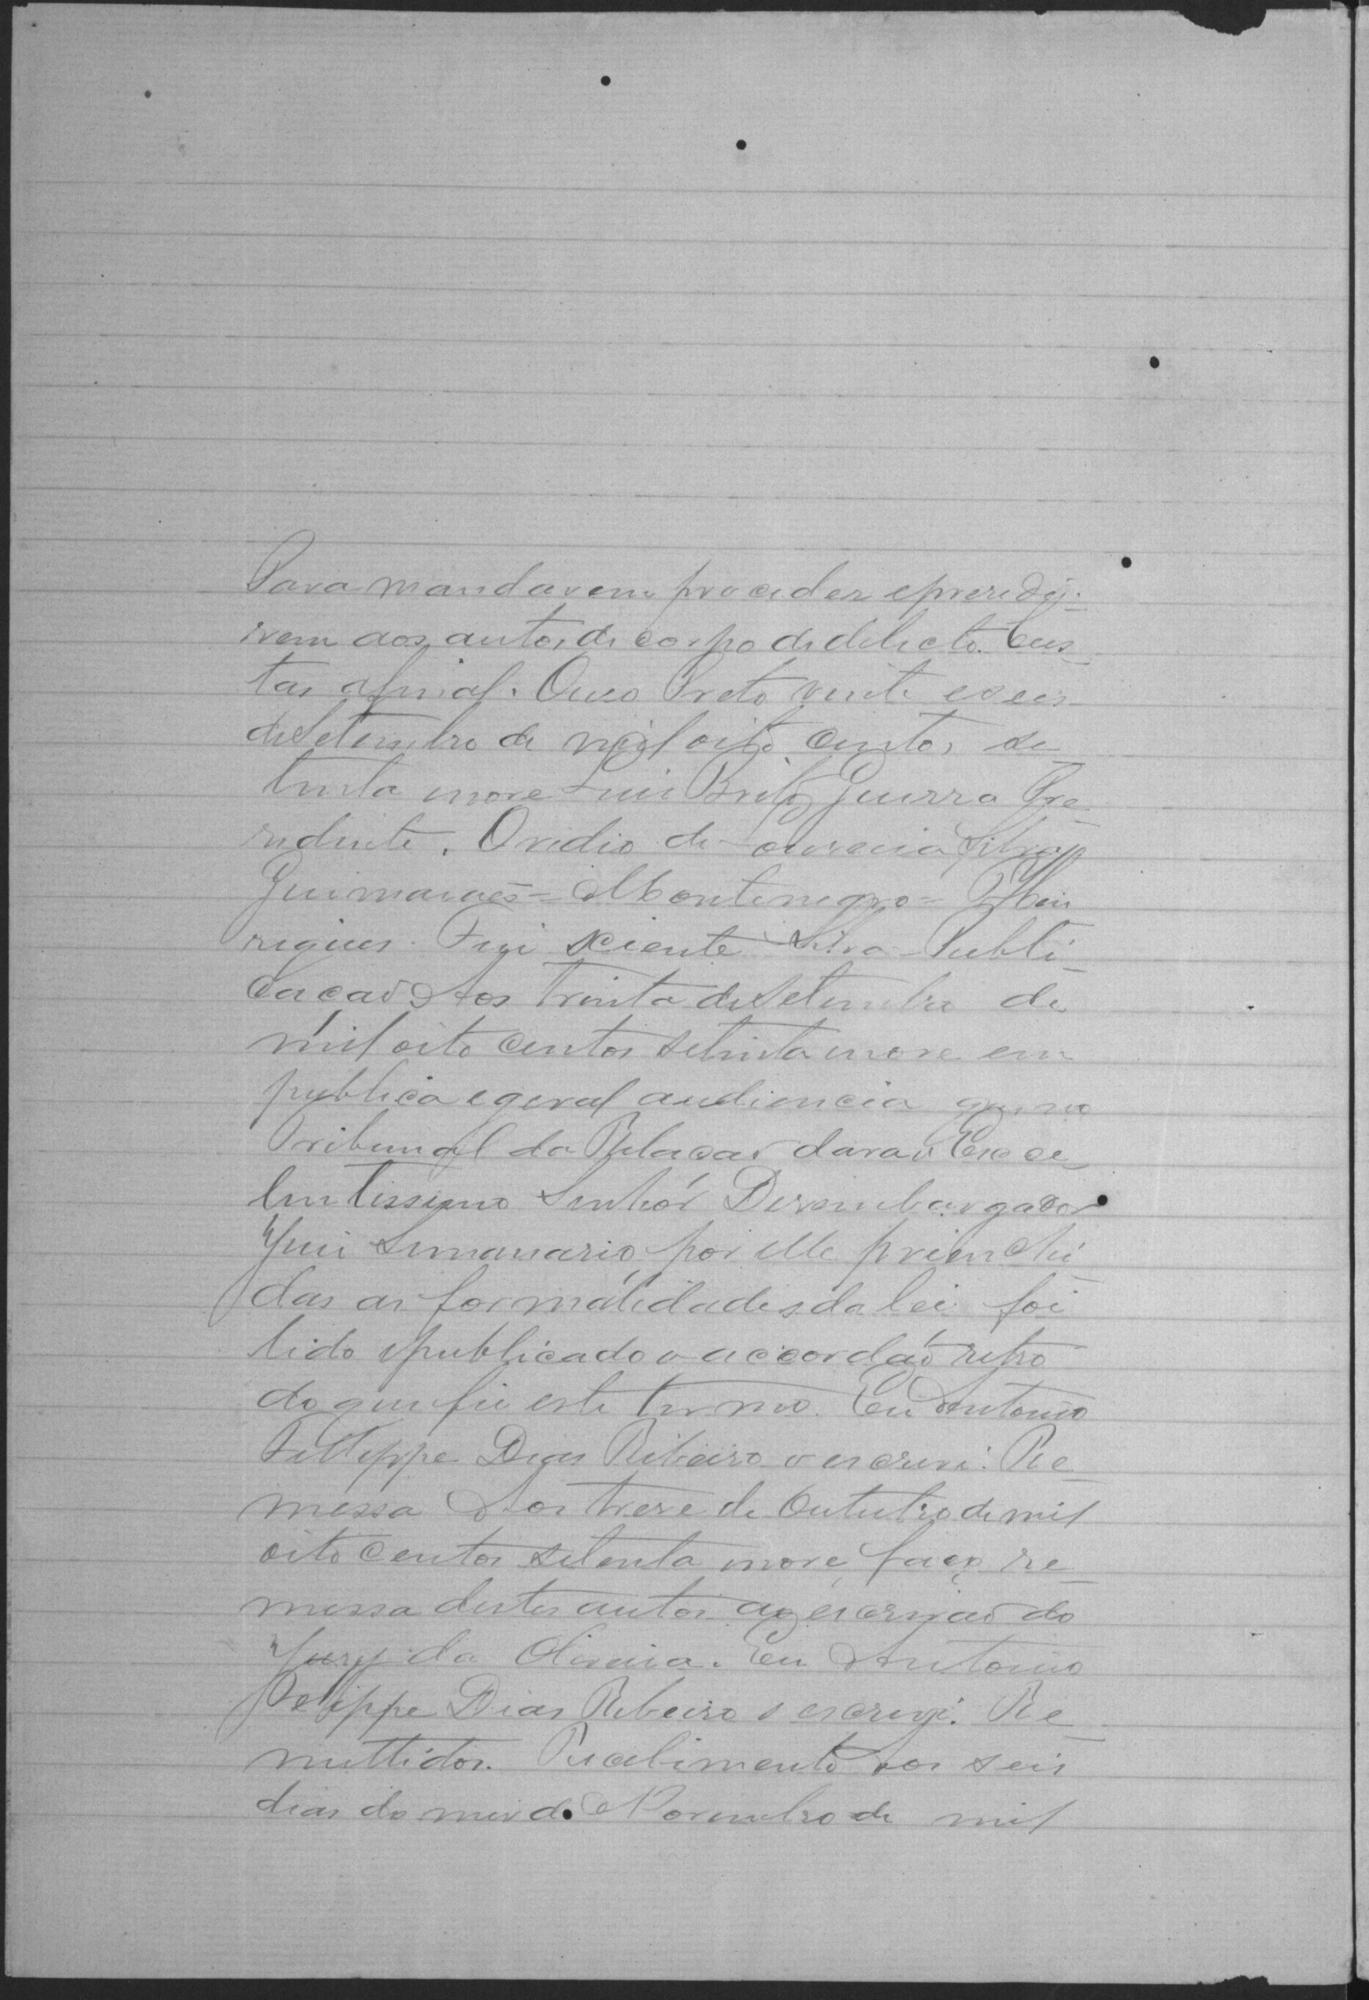 Para mandarem proceder epresedi-
rem aos autos de corpo dedelicto. Cus
tas afinal. Ouro Preto vinte eseis
deSetembro de mil oito centos se
tenta enove Luis Brito Guerra Pre
sidente. Ovidio de Loureiro Silva
Guimarães = Montenegro = Hen
riques. Fui sciente Silva Publi
cacão Aos trinta deSetembro de
mil oito centos setenta enove em
publica egeral audiencia que no
Tribunal da Relacao dava o Exce
lentissimo Senhór Desembargador
Juiz Semanario, por elle prienchi
das as formalidades da lei foi
lido epublicado o accordão retro
do que fiz este termo. Eu Antonio
Felleppe Dias Ribeiro o escrevi. Re
messa Aos treze de Outubro de mil
oito centos setenta enove, faço re
messa destes autos ao escrivão do
Jury da Oliveira. Eu Antonio
Felippe Dias Ribeiro o escrevi. Re
mettidos. Recebimento Aos seis
dias do mez de Novembro de mil